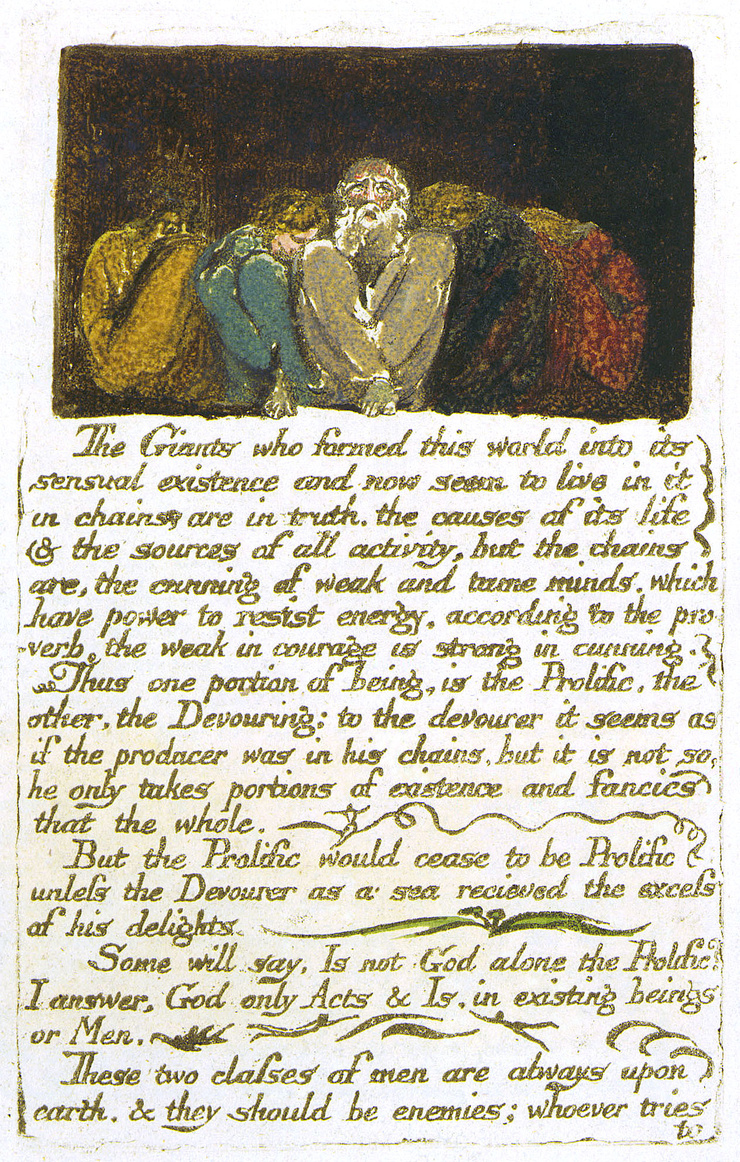 The Giants who formed this world into its
sensual existence and now seem to live in it
in chains, are in truth. the causes of its life
& the sources of all activity, but the chains
are, the cunning of weak and tame minds. which
have power to resist energy. according to the pro-
-verb, the weak in courage is strong in cunning.
Thus one portion of being, is the Prolific. the
other, the Devouring: to the devourer it seems as
if the producer was in his chains, but it is not so,
he only takes portions of existence and fancies
that the whole.
But the Prolific would cease to be Prolific
unleſs the Devourer as a sea recieved the exceſs
of his delights.
Some will say, Is not God alone the Prolific?
I answer, God only Acts & Is, in existing beings
or Men.
These two claſses of men are always upon
earth, & they should be enemies; whoever tries
to